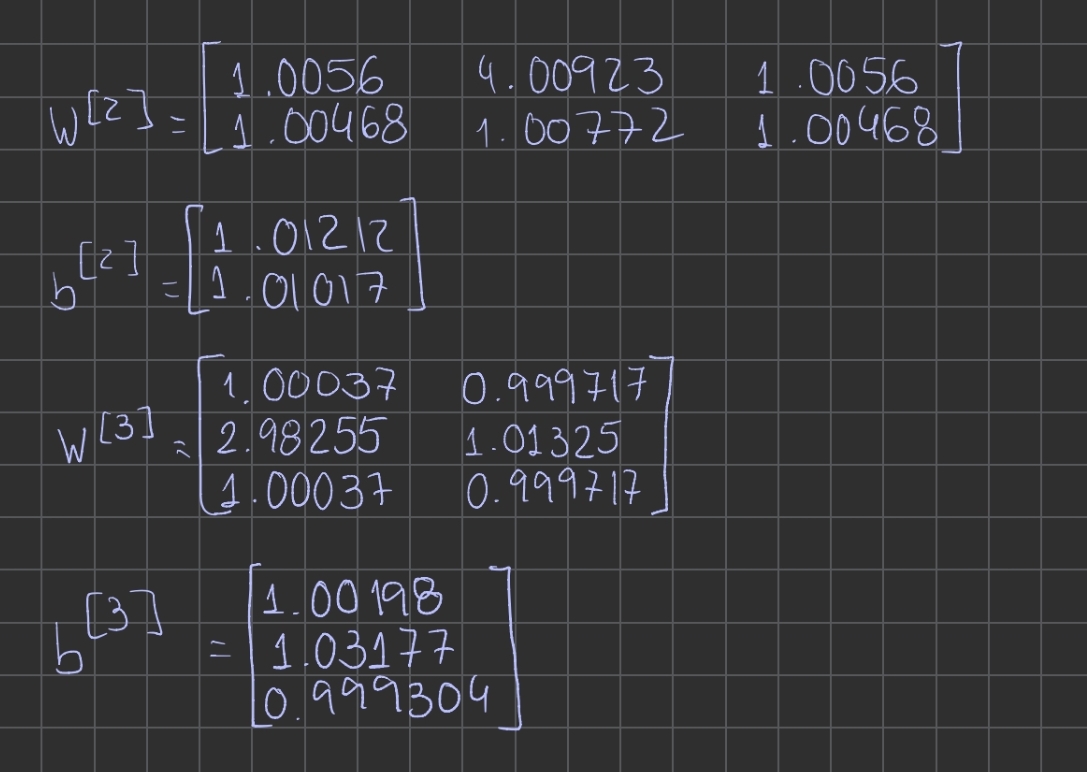 W[2] = [1.0056 4.00923 1.0056
1.00468 1.00772 1.00468]
b[2] = [1.01212
1.01017]
W[3] = [1.00037 0.999717
2.98255 1.01325
1.00037 0.999717]
b[3] = [1.00198
1.03177
0.999304]